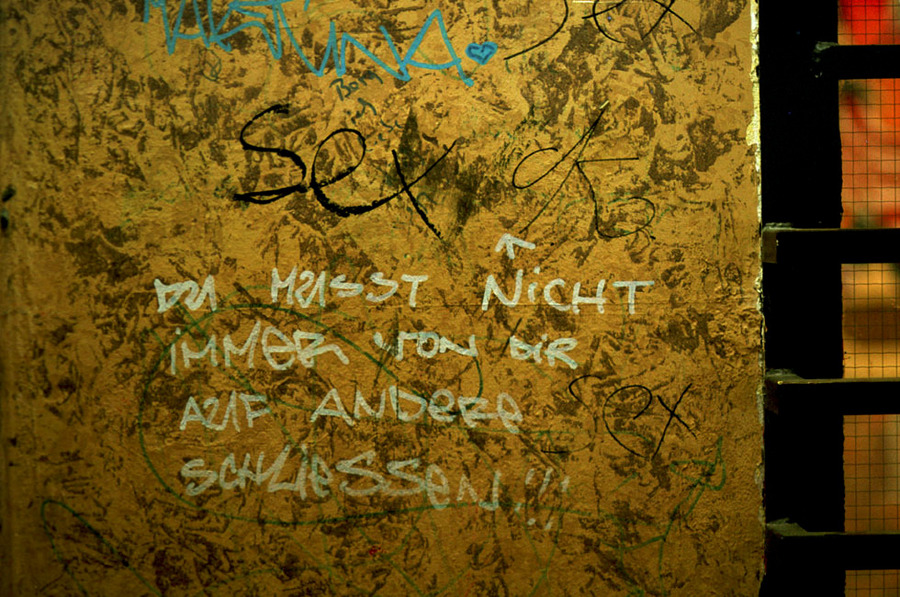 Sex
DU MUSST NICHT
iMMER VON DIR
AUF ANDERE
SCHLiESSEN!!!
Sex